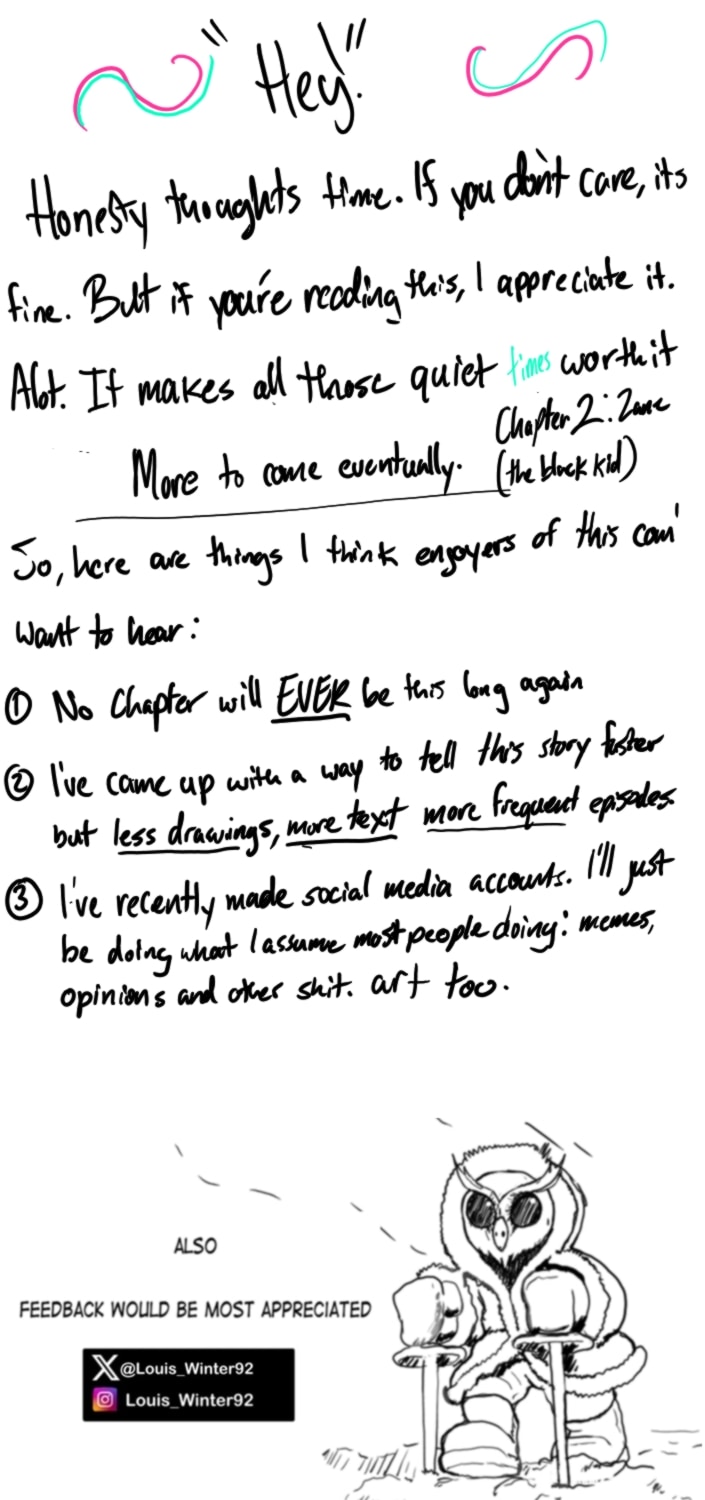 "Hey!"
Honesty thoughts time. If you don't care, its
fine. But if you're reading this, I appreciate it.
Alot. It makes all those quiet times worth it
Chapter 2: Zane
(the black kid)
More to come eventually.
So, here are things I think enjoyers of this com'
want to hear:
① No Chapter will EVER be this long again
② I've came up with a way to tell this story faster
but less drawings, more text more frequent episodes.
③ I've recently made social media accounts. I'll just
be doing what I assume most people doing: memes,
opinions and other shit. art too.
ALSO
FEEDBACK WOULD BE MOST APPRECIATED
X @Louis_Winter92
Louis_Winter92